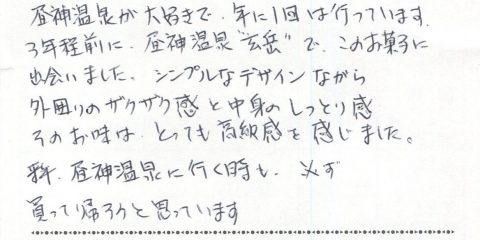 昼神温泉が大好きで、年に1回は行っています。
3年程前に、昼神温泉"玄岳"で、このお菓子に
出会いました。シンプルなデザインながら
外囲りのザクザク感と中身のしっとり感
そのお味は、とっても高級感を感じました。
昼神温泉に行く時も、必ず
買って帰ろうと思っています